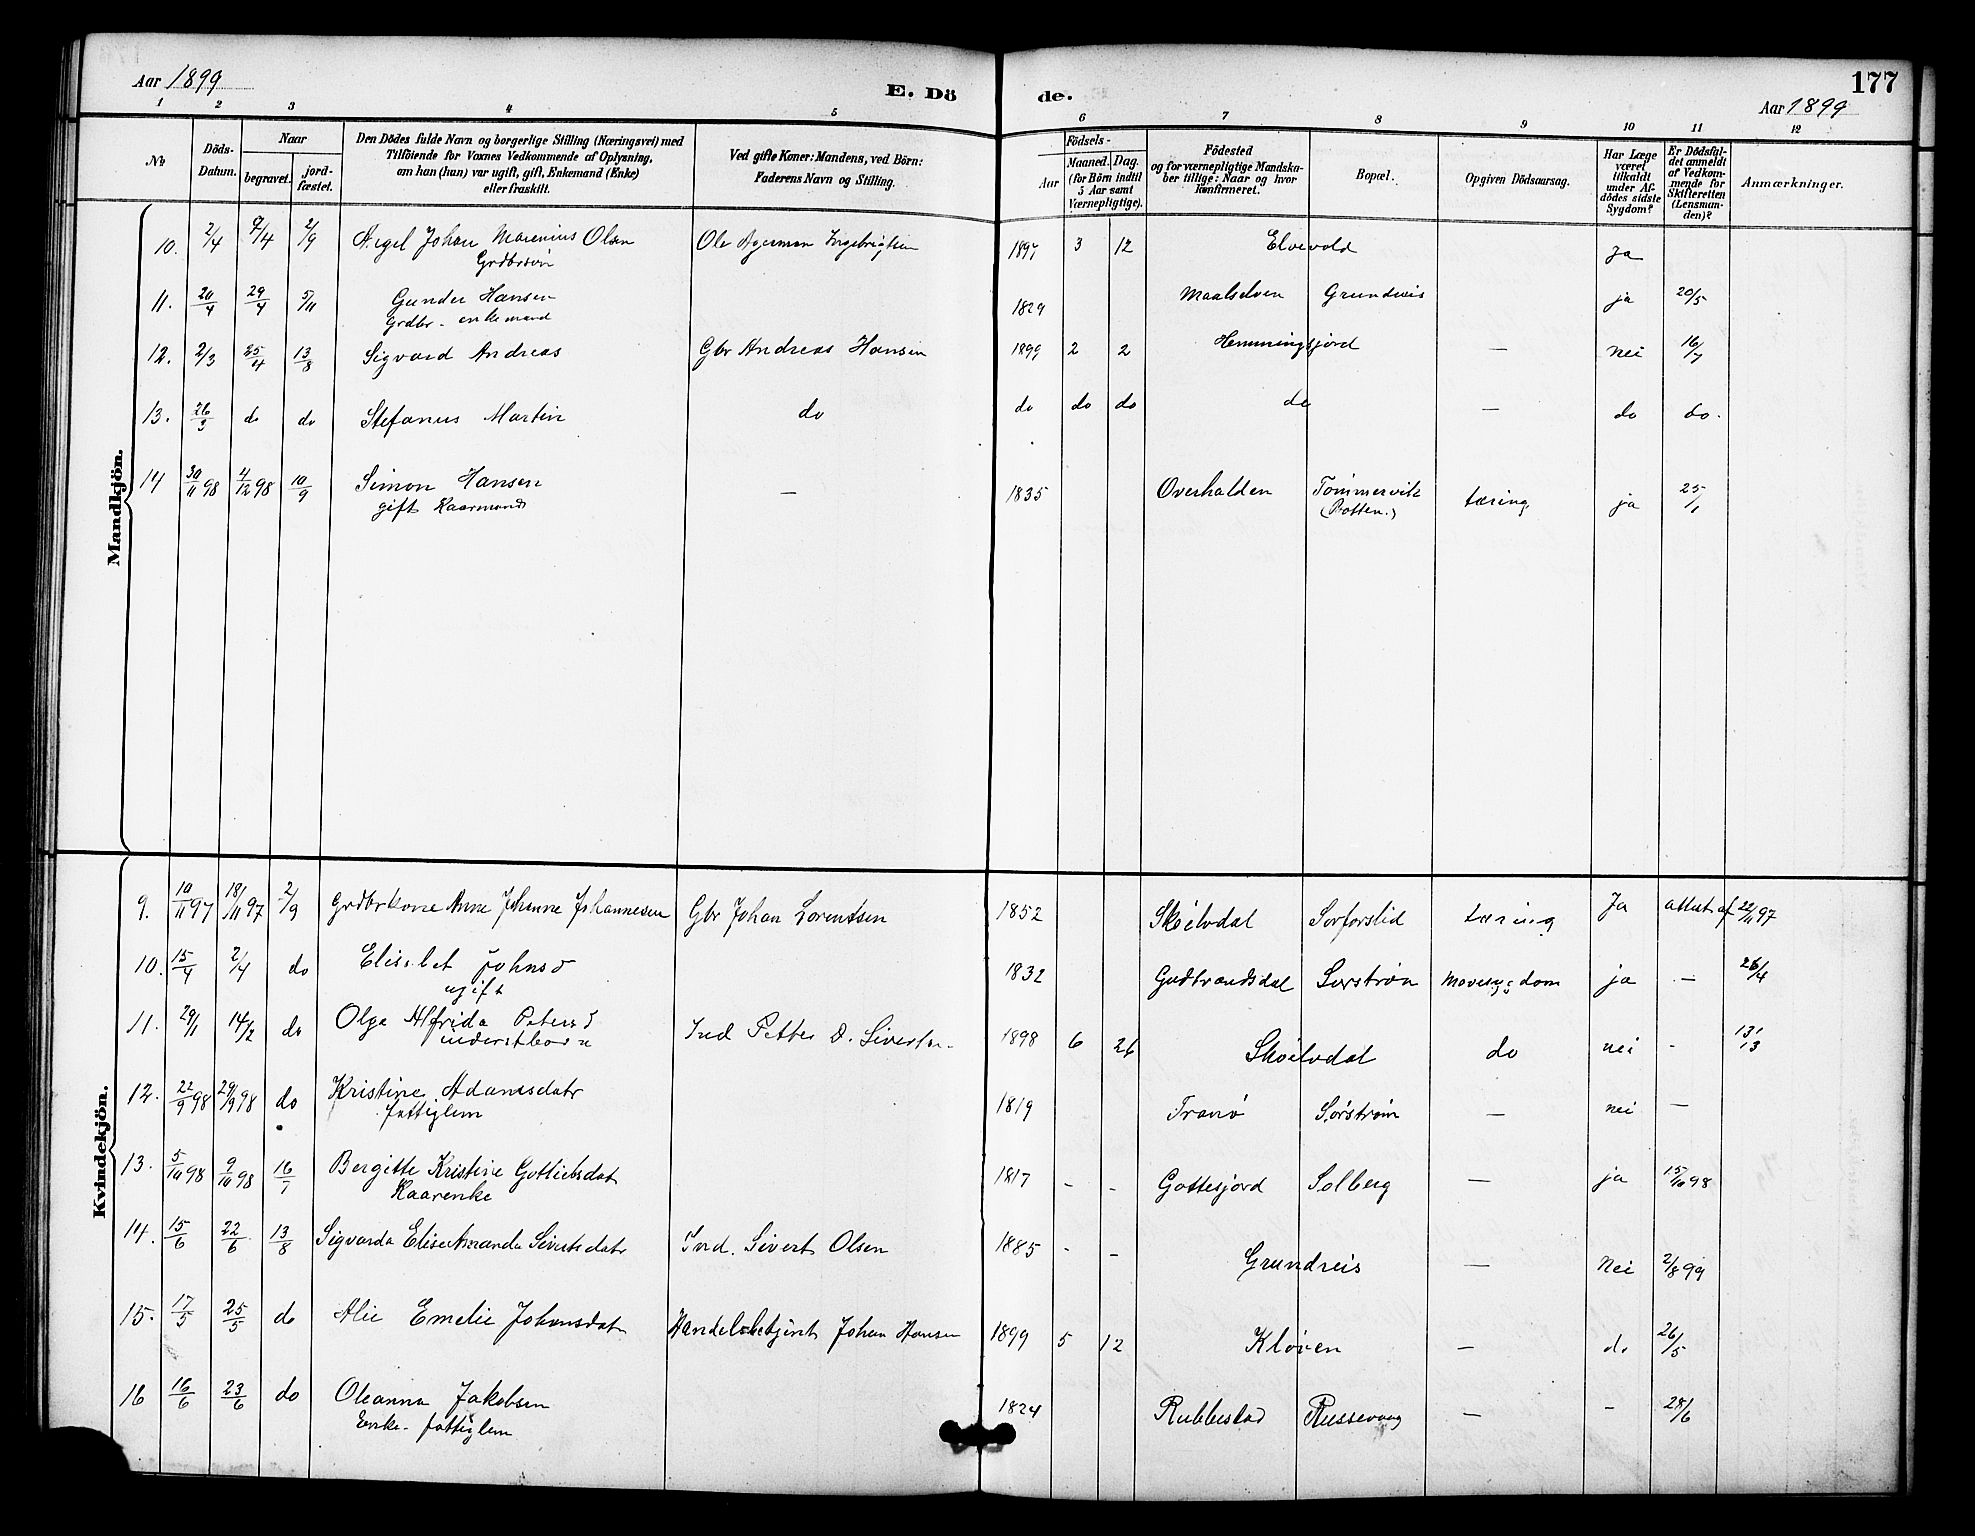 Aar 1899
E. Dö
de.
177
Aar 1899
1 2 3 4 5 6 7 8 9 10 11 12
No
Döds-Datum.
Naar
begravet.
jord-fæstet.
Den Dödes fulde Navn og borgerlige Stilling (Næringsvei) med
Tilföiende for Voxnes Vedkommende af Oplysning,
om han (hun) var ugift, gift, Enkemand (Enke)
eller fraskilt.
Ved gifte Koner: Mandens, ved Börn:
Faderens Navn og Stilling.
Födsels-
Aar
Maaned. Dag.
(for Börn indtil
5 Aar samt
Værnepligtige).
Födested
og for værnepligtige Mandska-
ber tillige: Naar og hvor
konfirmeret.
Bopæl.
Opgiven Dödsaarsag.
Har Læge
været
tilkaldt
under Af-
dödes sidste
Sygdom?
Er Dödsfal-
det anmeldt
af Vedkom-
mende for
Skifteretten
(Lensman-
den)?
Anmærkninger.
Mandkjön.
10. 2/4 7/4 2/9 Johan Marenius Olsen Ole 1897 3 12 Elvevold Ja
Grdbrsøn
11. 20/4 29/4 5/11 Gunder Hansen 1829 Maalselven Grundreis ja 20/5
Grdbr. enkemand
12. 2/3 25/4 13/8 Sigvard Andreas Gbr Andreas Hansen 1899 2 2 Hemmingsjord — nei 16/7
13. 26/3 do do Stefanus Martin do do do do do — do do.
14 30/11 98 4/12 98 10/9 Simon Hansen — 1835 Overhalden Tømmervik tæring ja 25/1
gift Kaarmand (Botten.)
Kvindekjön.
9. 10/11 97 18/11 97 2/9 Grdbrkone Anne Johanne Johannesen Gbr Johan Lorentsen 1852 Skøelvdal Sorforslid tæring Ja attest af 22/11 97
10. 15/4 2/4 do Elisabet Johnsd 1832 Gudbrandsdal Sørstrøm ja — 26/4
ugift
11. 29/1 14/2 do Olga Alfrida Petersd Ind Petter D. Sivertsen 1898 6 26 Skøelvdal do nei - 13/3
inderstbarn
12. 22/9 98 29/9 98 do Kristine Adamsdatr 1819 Tranø Sørstrøm — nei —
fattiglem
13. 5/10 98 9/10 98 16/7 Bergitte Kristine Gottliebsdat 1817 - - Gottesjord Solberg — ja 15/10 98
Kaarenke
14. 15/6 22/6 13/8 Sigvarda Elise Amanda Sivertsdatr Ind. Sivert Olsen 1885 - - Grundreis — Nei 2/8 99
15. 17/5 25/5 do Alie Emelie Johansdat Handelsbetjent Johan Hansen 1899 5 12 Kløven — do 26/5
16 16/6 23/6 do Oleanna Jakobsen 1824 Rubbestad Russevaag — - 28/6
Enke. fattiglem